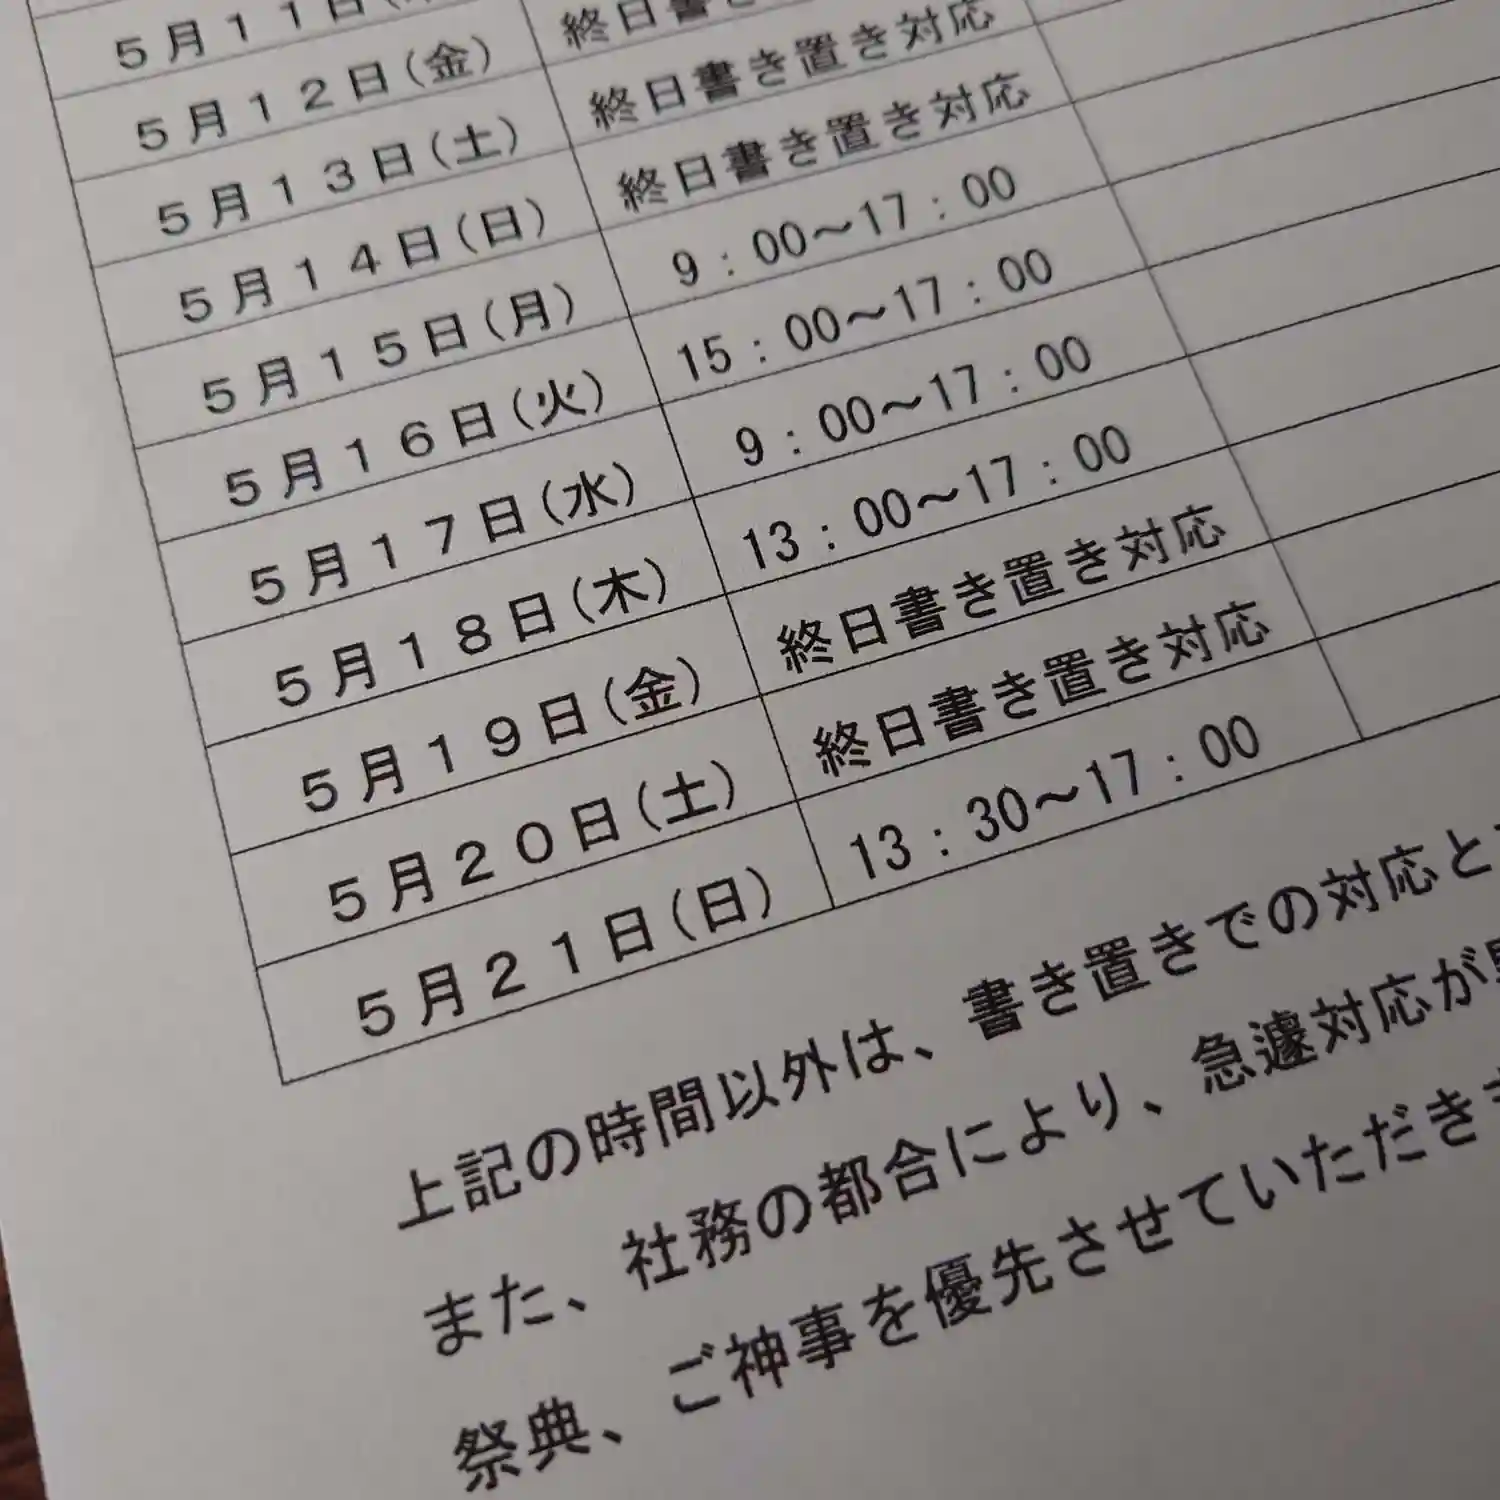 ５月１１日(
５月１２日(金) 終日書き
５月１３日(土) 終日書き置き対応
５月１４日(日) 終日書き置き対応
５月１５日(月) 9：00～17：00
５月１６日(火) 15：00～17：00
５月１７日(水) 9：00～17：00
５月１８日(木) 13：00～17：00
５月１９日(金) 終日書き置き対応
５月２０日(土) 終日書き置き対応
５月２１日(日) 13：30～17：00
上記の時間以外は、書き置きでの対応と
また、社務の都合により、急遽対応が
祭典、ご神事を優先させていただき